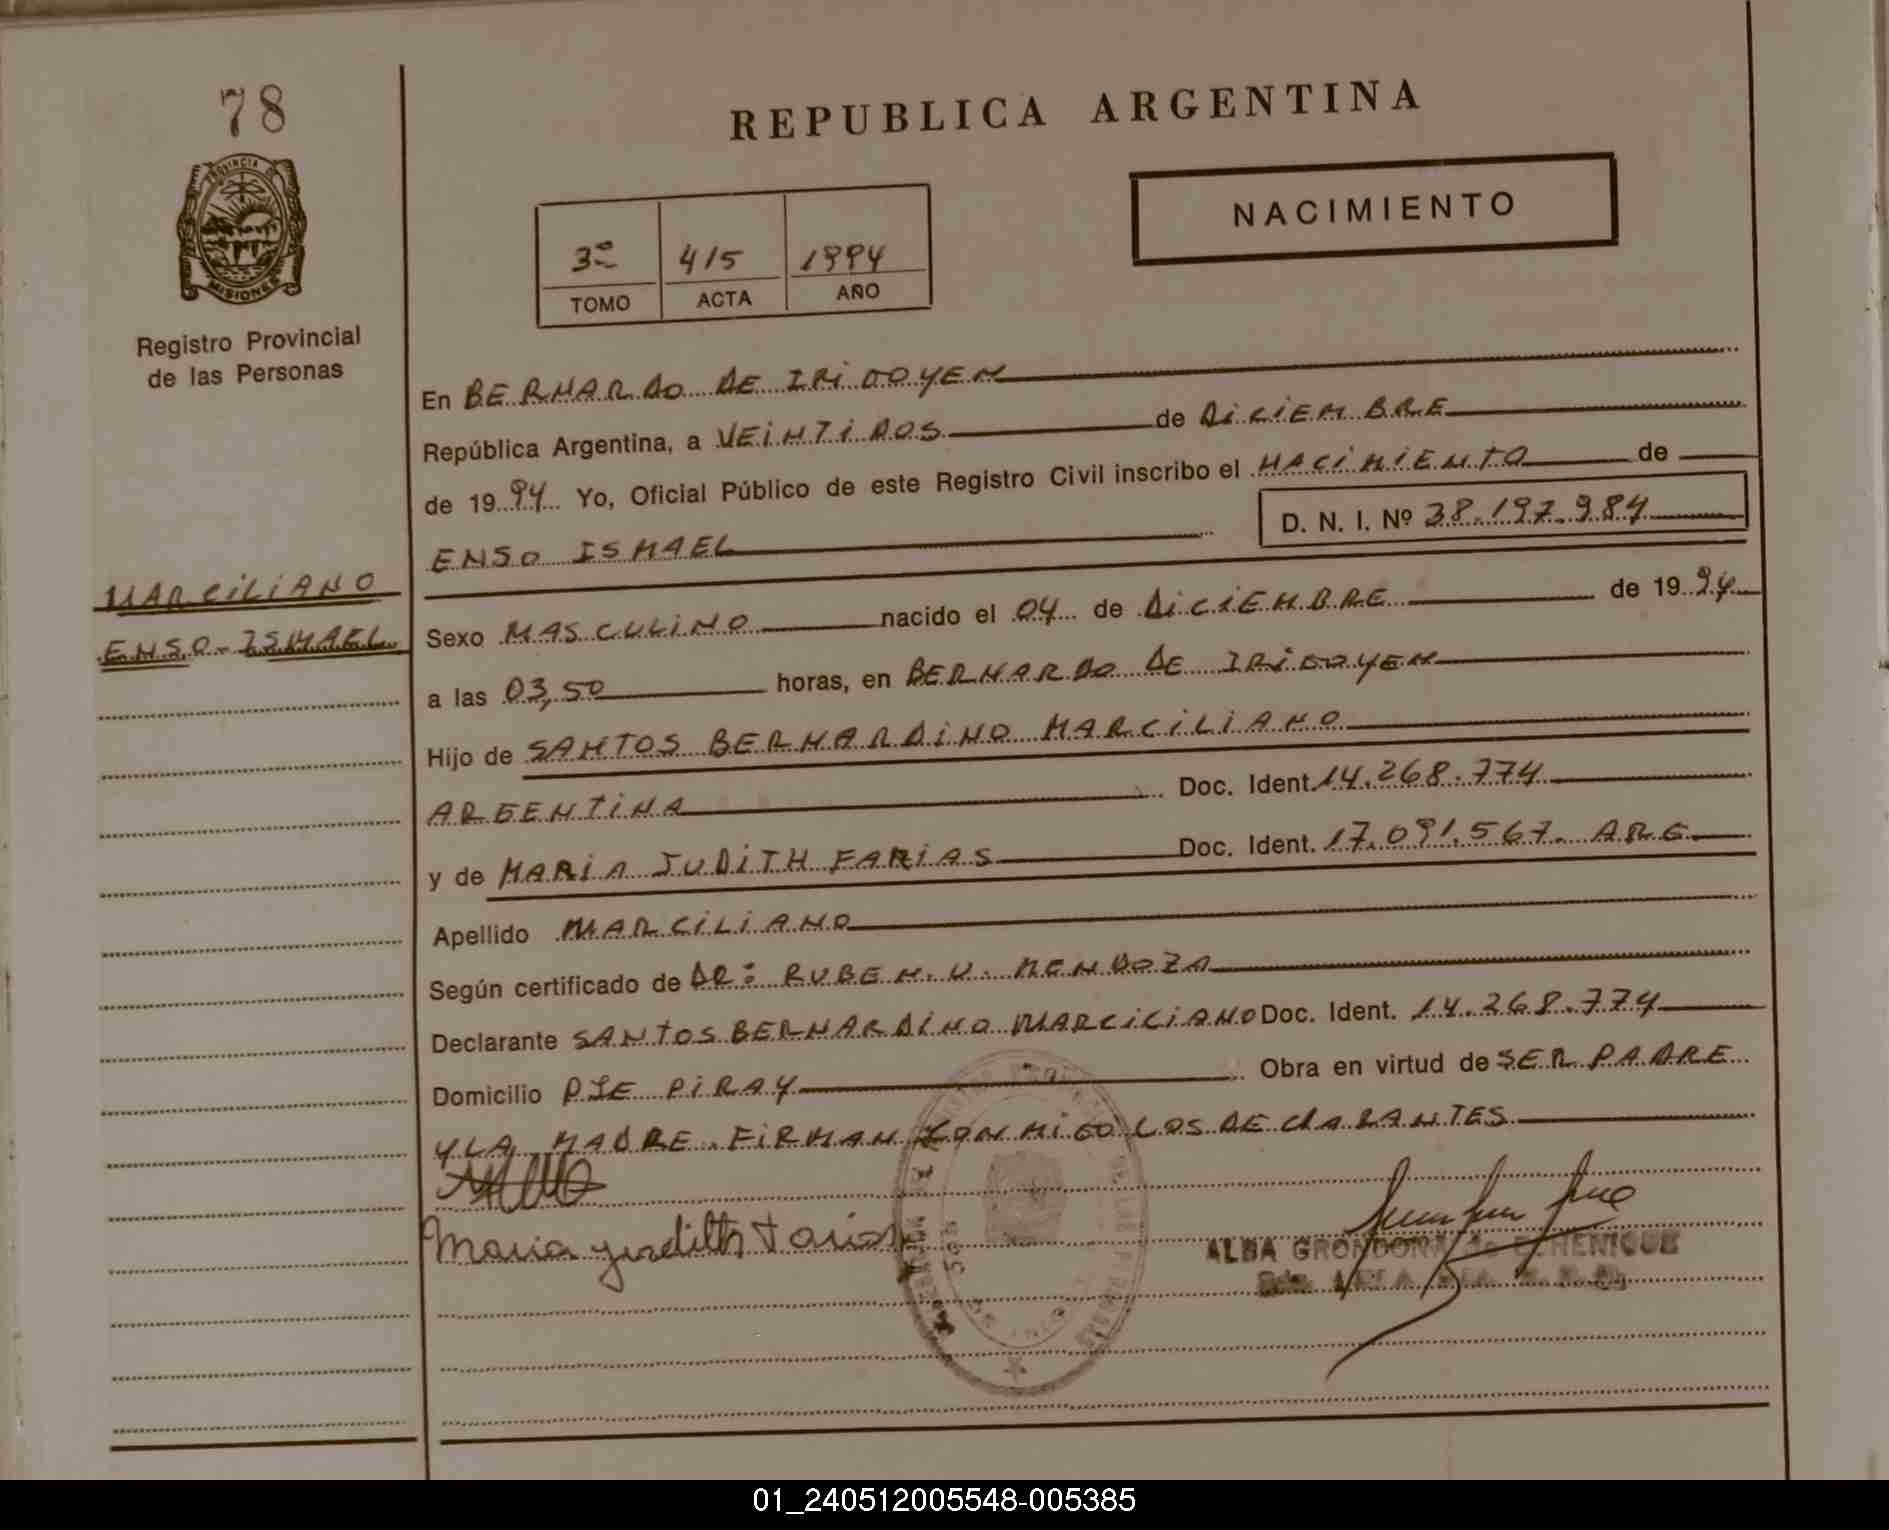 78
REPUBLICA ARGENTINA
PROVINCIA DE
MISIONES
Registro Provincial
de las Personas
NACIMIENTO
3º 415 1994
TOMO ACTA AÑO
En BERNARDO DE IRIGOYEN
República Argentina, a VEINTIDOS de DICIEMBRE
de 1994 Yo, Oficial Público de este Registro Civil inscribo el NACIMIENTO de
ENSO ISMAEL D. N. I. Nº 38.197.984
MARCILIANO
ENSO-ISMAEL
Sexo MASCULINO nacido el 04 de DICIEMBRE de 1994
a las 03,50 horas, en BERNARDO DE IRIGOYEN
Hijo de SANTOS BERNARDINO MARCILIANO
ARGENTINA Doc. Ident. 14.268.774
y de MARIA JUDITH FARIAS Doc. Ident. 17.091.567. ARG
Apellido MARCILIANO
Según certificado de DR: RUBEN.U. MENDOZA
Declarante SANTOS BERNARDINO MARCILIANO Doc. Ident. 14.268.774
Domicilio PTE PIRAY Obra en virtud de SER PADRE
Y LA MADRE. FIRMAN CONMIGO LOS DECLARANTES
Maria yudith Farias
ALBA GRONDONA de ECHENIQUE
01_240512005548-005385